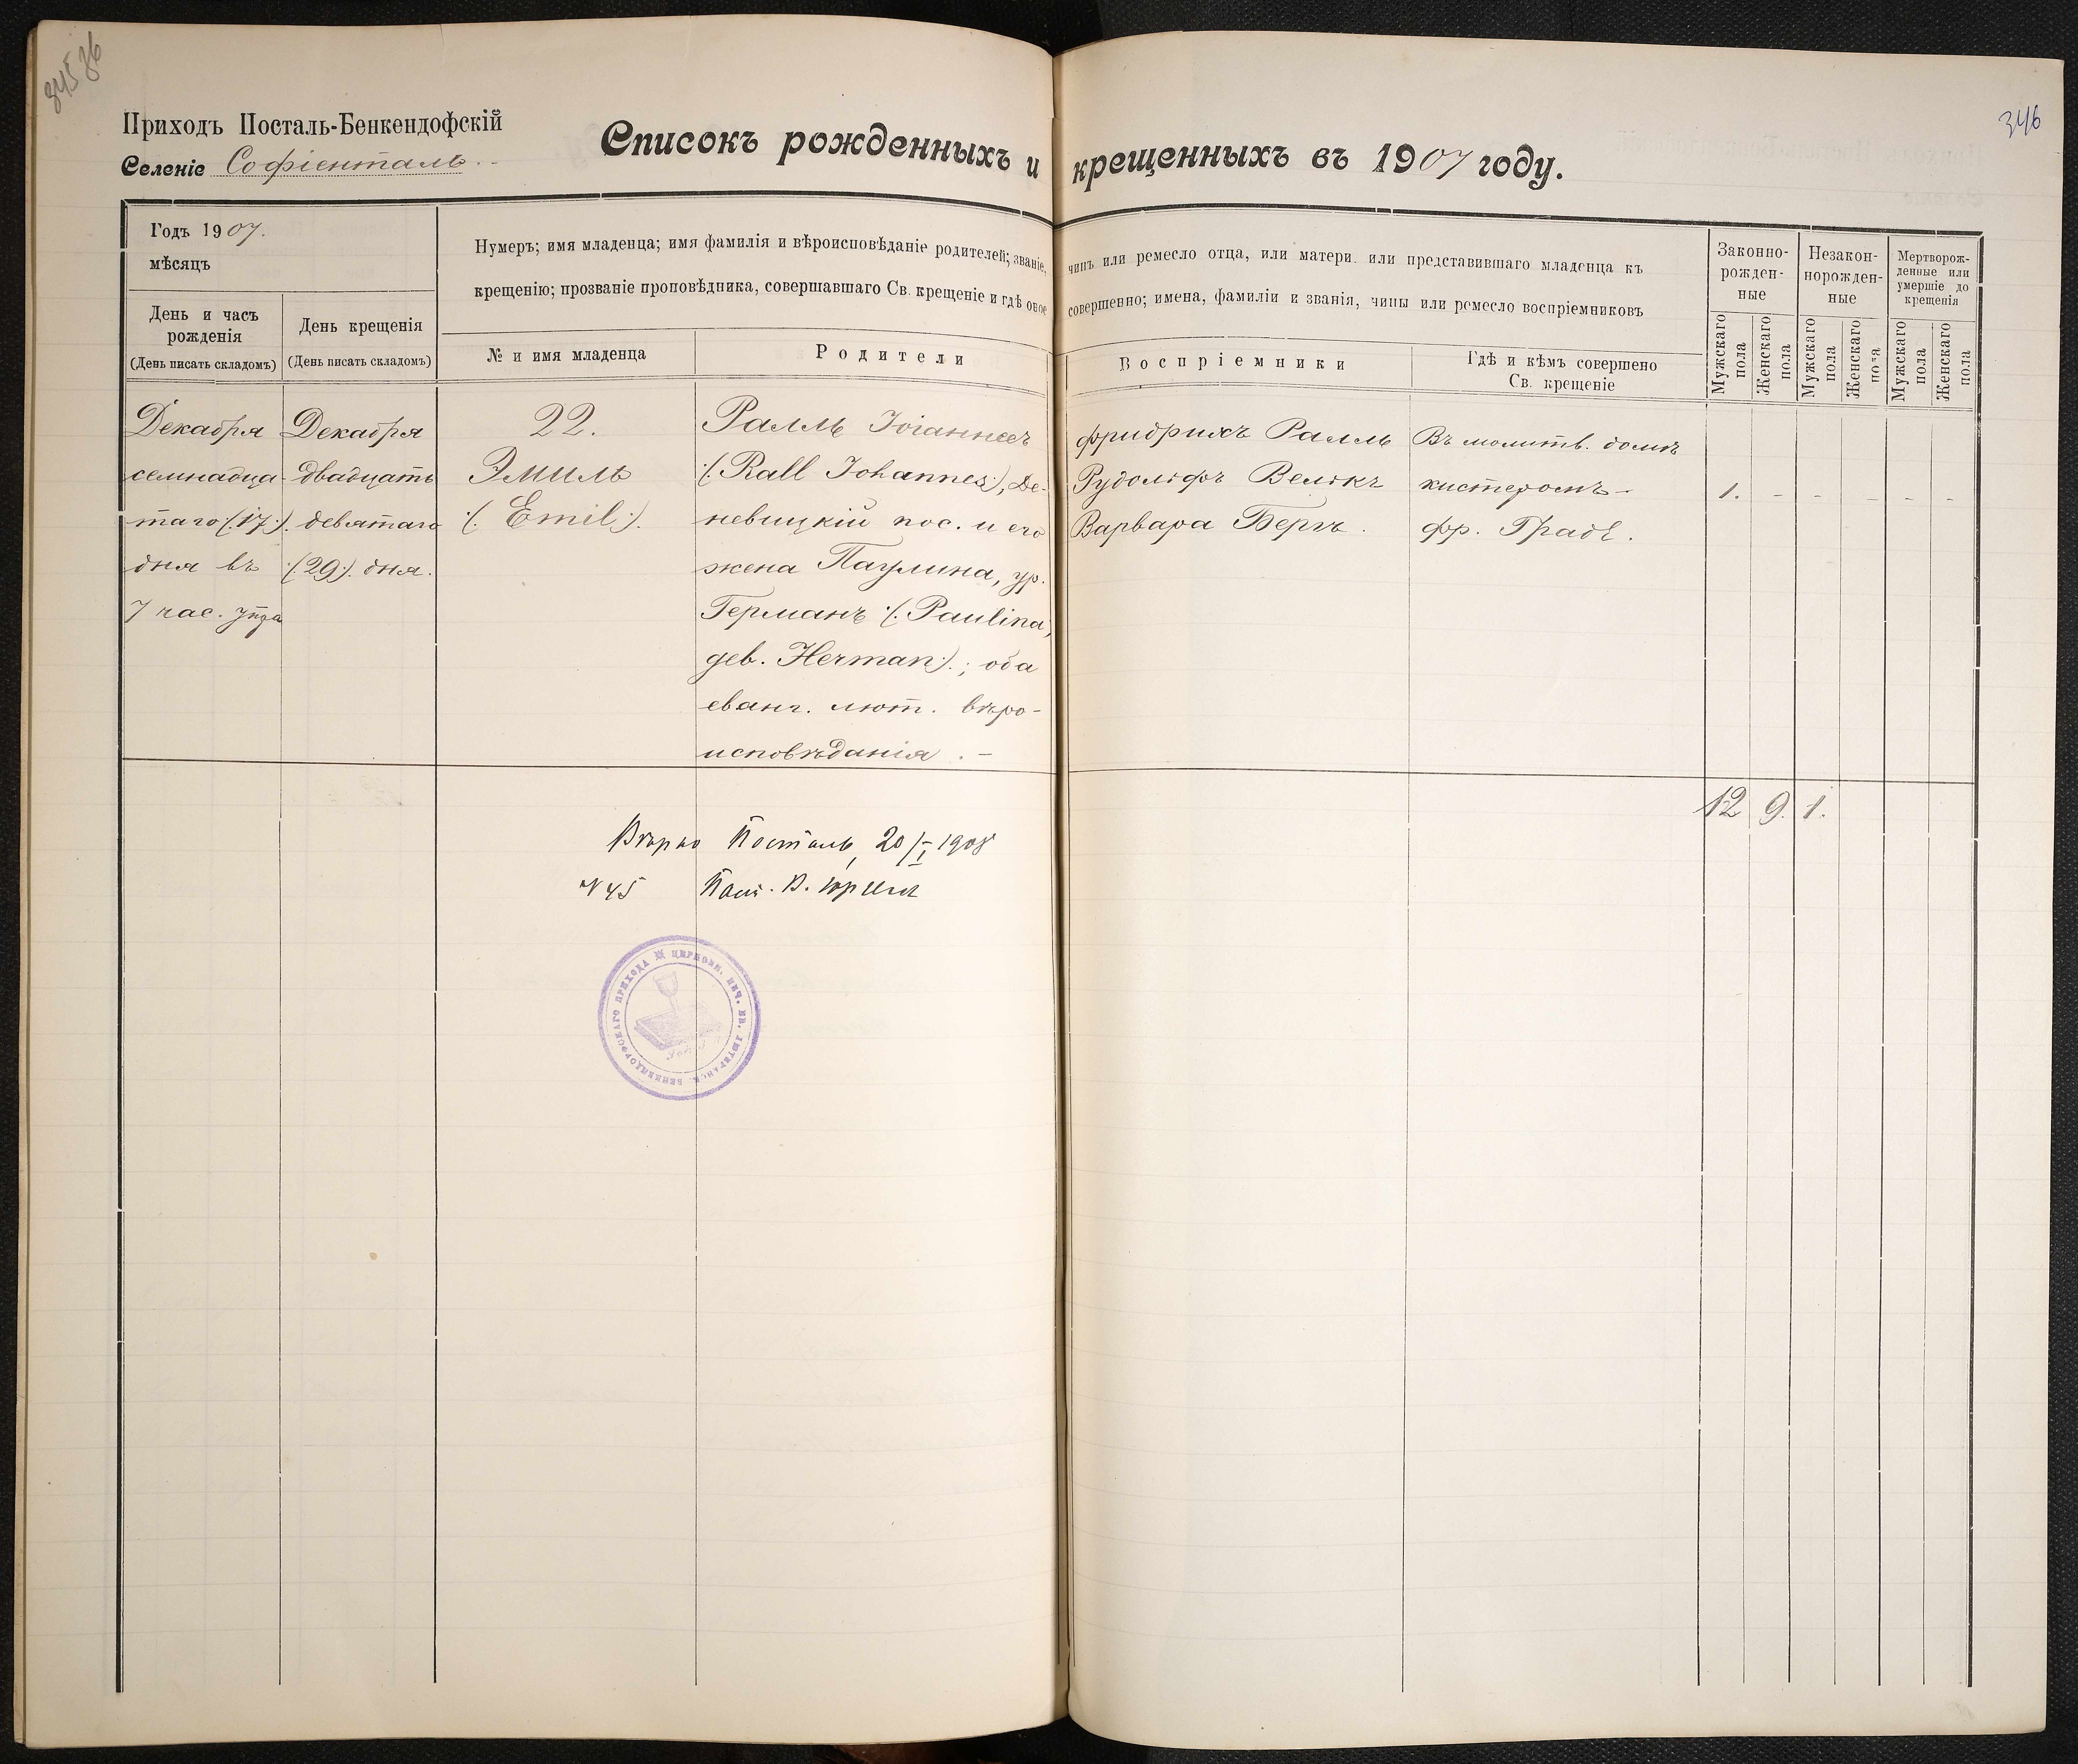 84536
346
Приходъ Посталь-Бенкендофскій
Селеніе Софіенталь.
Списокъ рожденныхъ и крещенныхъ въ 1907 году.
Годъ 1907.
мѣсяцъ
День и часъ
рожденія
(День писать складомъ)
День крещенія
(День писать складомъ)
Нумеръ; имя младенца; имя фамилія и вѣроисповѣданіе родителей; званіе, чинъ или ремесло отца, или матери или представившаго младенца къ
крещенію; прозваніе проповѣдника, совершавшаго Св. крещеніе и гдѣ оное совершенно; имена, фамиліи и званія, чины или ремесло воспріемниковъ
№ и имя младенца
Родители
Воспріемники
Гдѣ и кѣмъ совершено
Св. крещеніе
Законно-
рожден-
ные
Незакон-
норожден-
ные
Мертворож-
денные или
умершіе до
крещенія
Мужскаго
пола
Женскаго
пола
Мужскаго
пола
Женскаго
пола
Мужскаго
пола
Женскаго
пола
Декабря
семнадца-
таго (:17:)
дня въ
7 час. утра
Декабря
двадцать
девятаго
(:29:) дня.
22.
Эмиль
(: Emil :).
Ралль Іоганнесъ
(: Rall Johannes), Де-
невицкій пос. и его
жена Паулина, ур.
Германъ (: Paulina,
geb. Herman :).; оба
еванг. лют. вѣро-
исповѣданія. -
Фридрихъ Ралль
Рудольфъ Велькъ
Варвара Бергъ.
Въ молитв. домѣ
кистеромъ -
Фр. Граде.
1. - - - - -
12 9. 1.
Вѣрно Посталь, 20/I 1908
№ 45 Паст.
ЦЕРКОВН. ПЕЧ. ЕВ. ЛЮТЕРАНСК. БЕНКЕНДОРФСКАГО ПРИХОДА